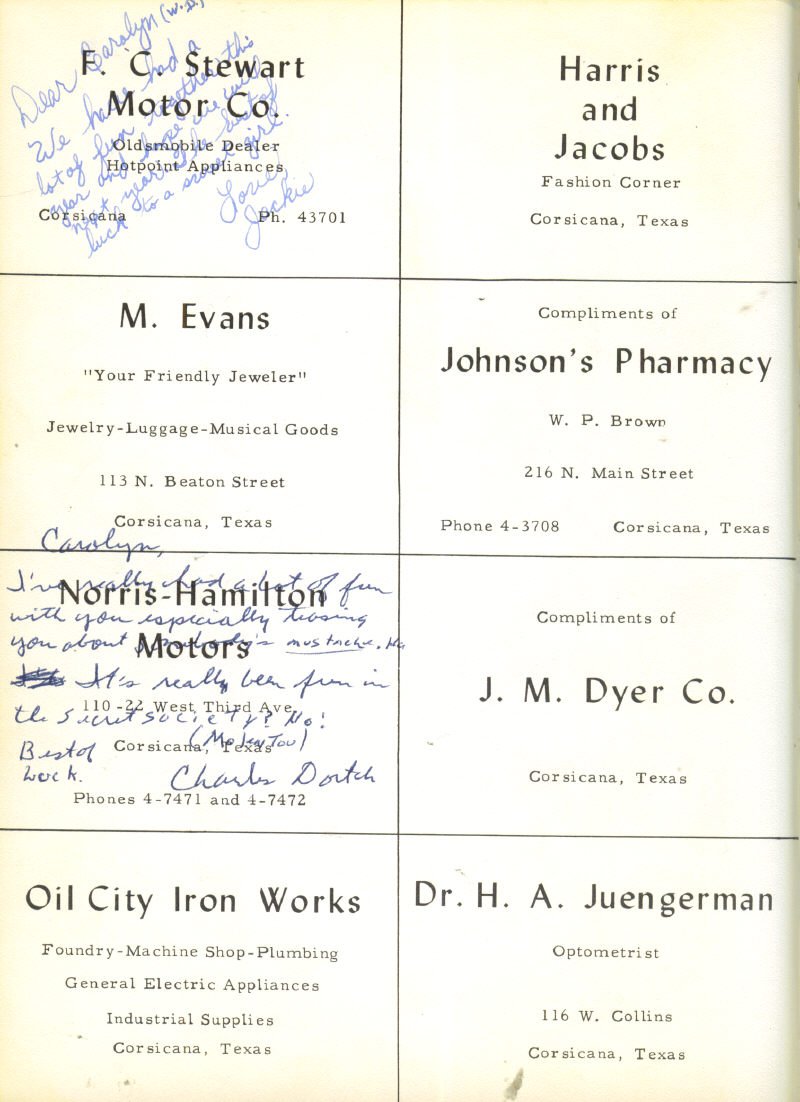 F. C. Stewart
Motor Co.
Oldsmobile Dealer
Hotpoint Appliances
Corsicana Ph. 43701
Dear Carolyn (W.D.)
We have had a
lot of fun together this
year and hope we will
next year. The best of
luck to a sweet girl.
Love,
Jackie
Harris
and
Jacobs
Fashion Corner
Corsicana, Texas
M. Evans
"Your Friendly Jeweler"
Jewelry-Luggage-Musical Goods
113 N. Beaton Street
Corsicana, Texas
Compliments of
Johnson's Pharmacy
W. P. Brown
216 N. Main Street
Phone 4-3708 Corsicana, Texas
Norris-Hamilton
Motors
110-22 West Third Ave
Corsicana, Texas
Phones 4-7471 and 4-7472
Carolyn,
I've really had a lot of fun
with you especially teasing
you about somebody's mustache. Ha
It's really been fun in
the Secret Society? No!
Best of
luck.
Charles Dortch
Compliments of
J. M. Dyer Co.
Corsicana, Texas
Oil City Iron Works
Foundry-Machine Shop-Plumbing
General Electric Appliances
Industrial Supplies
Corsicana, Texas
Dr. H. A. Juengerman
Optometrist
116 W. Collins
Corsicana, Texas